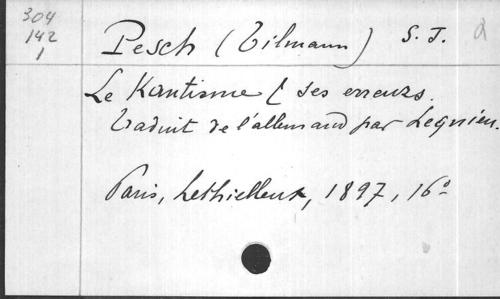 304
142
1
Pesch (Tilmann) S. J.
Le Kantisme & ses erreurs.
Traduit de l'allemand par Lequien.
Paris, Lethielleux, 1897, 16°